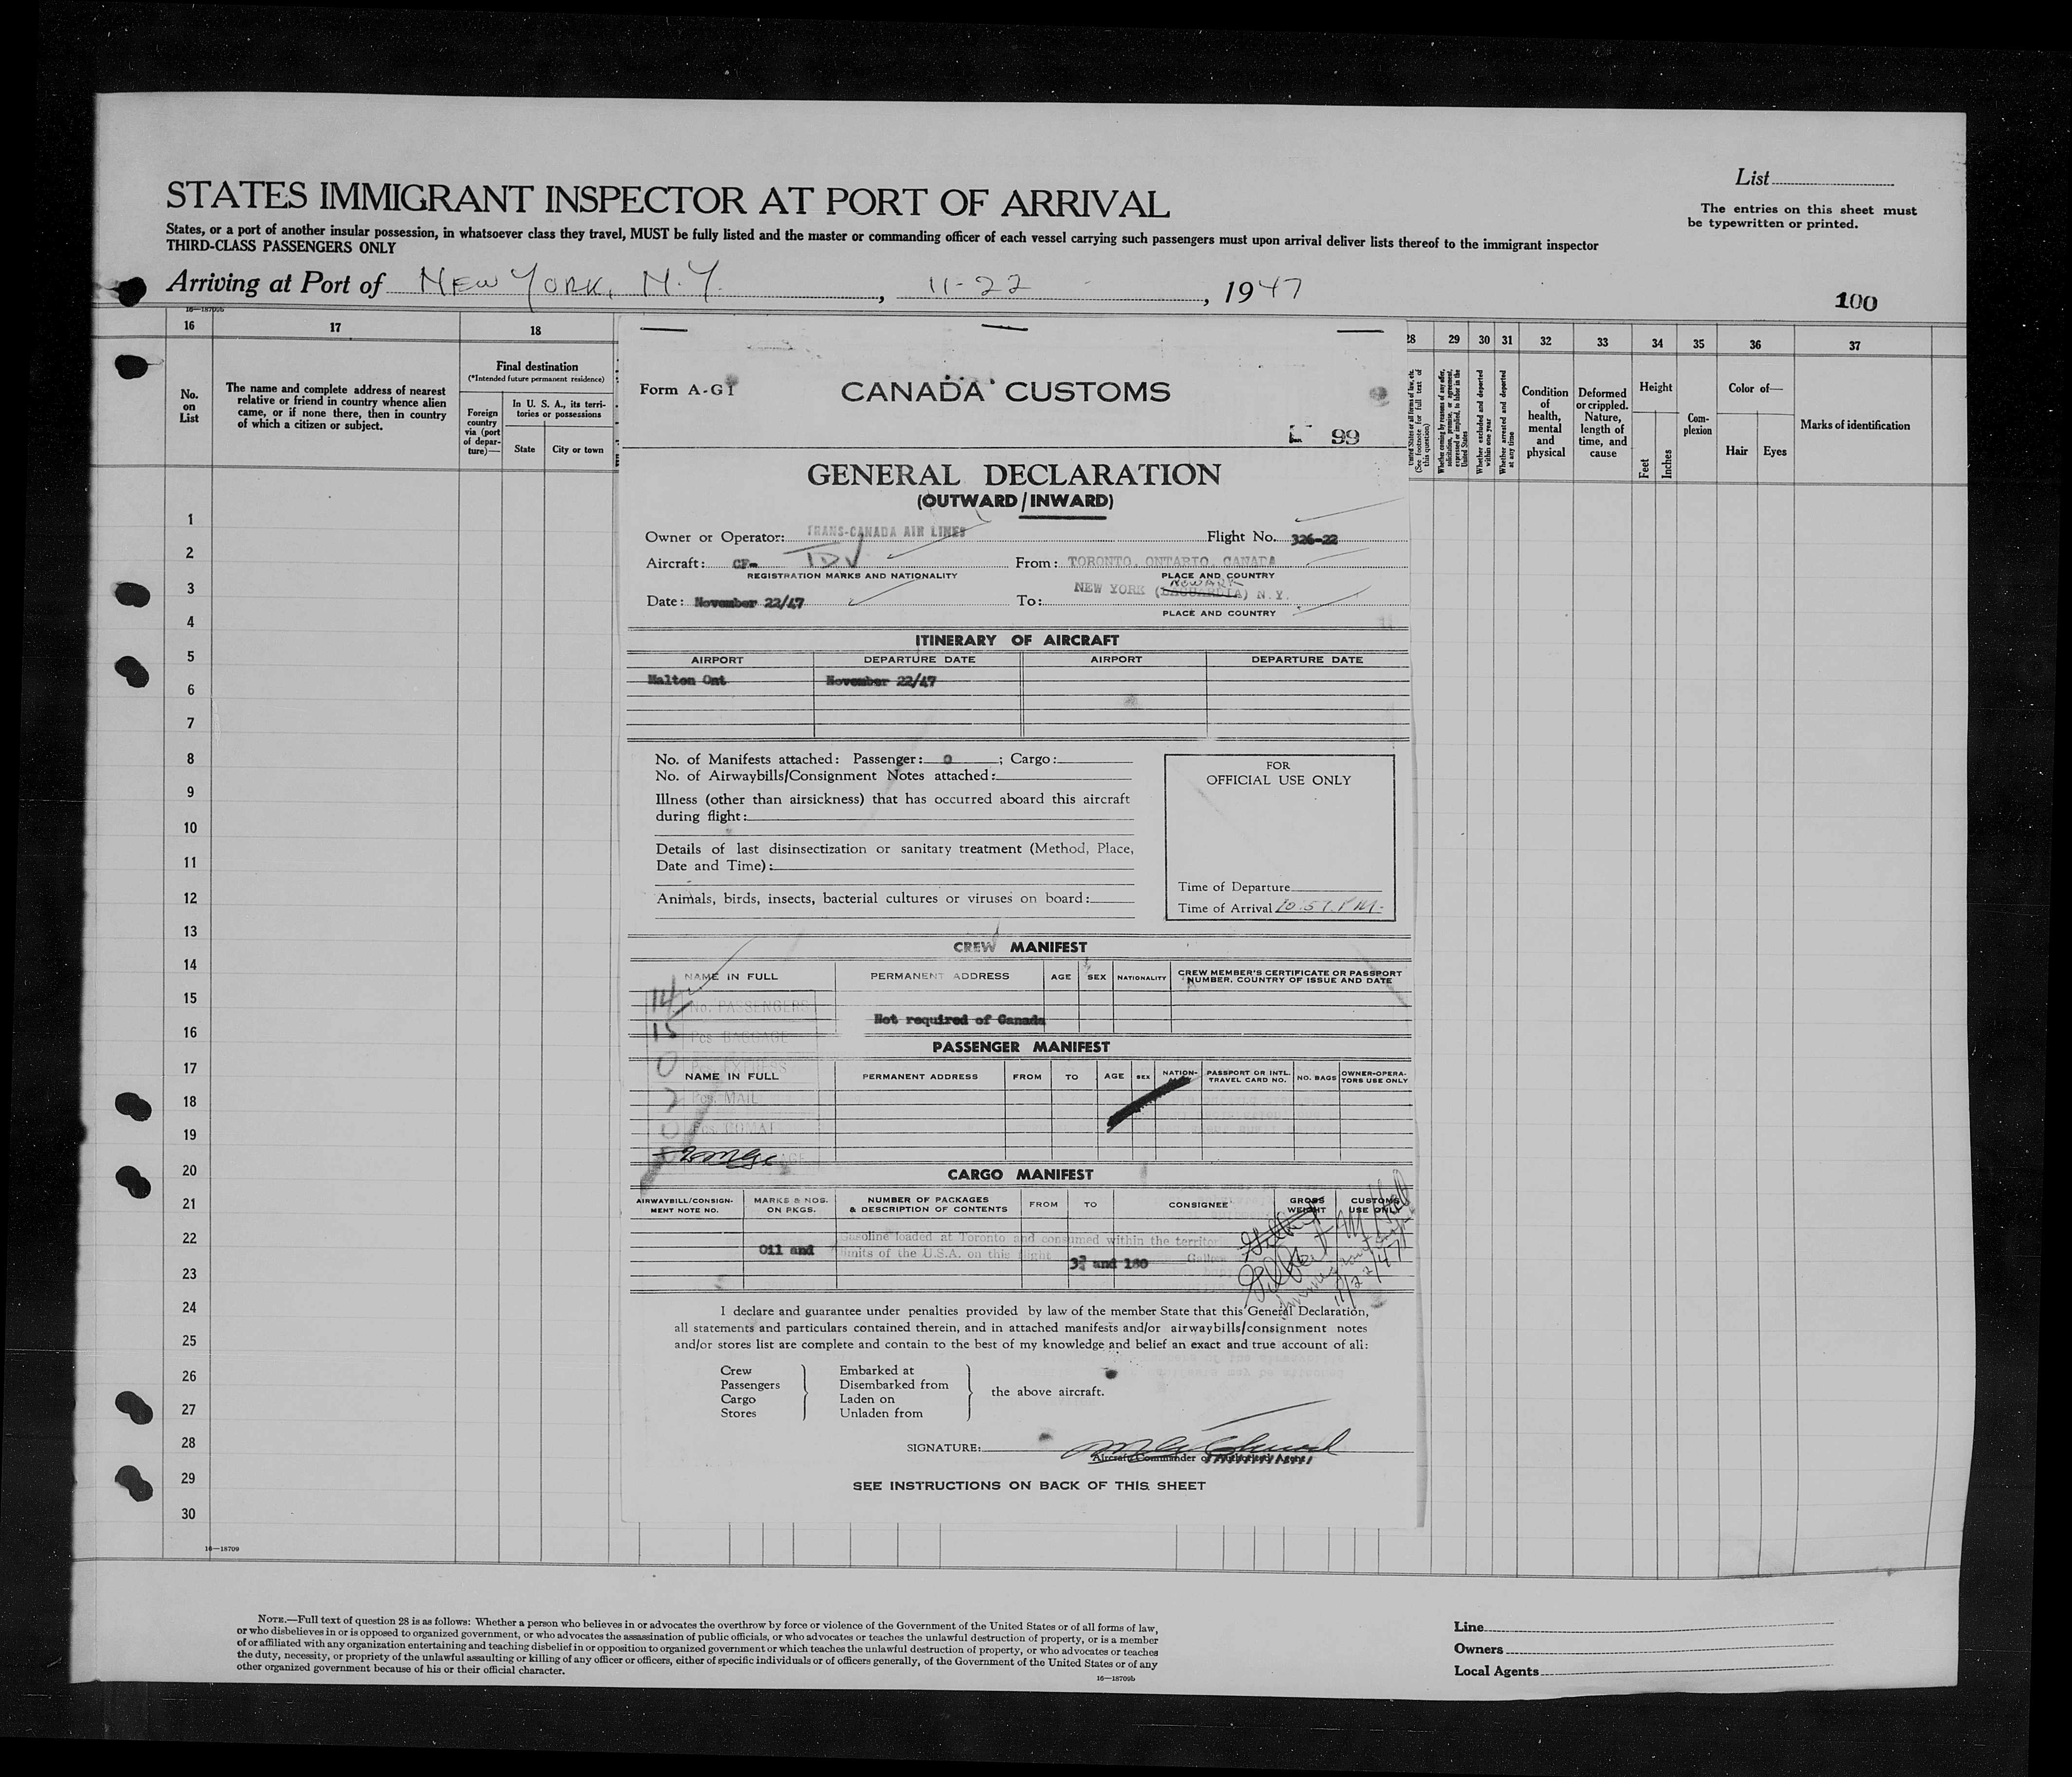 List
The entries on this sheet must
be typewritten or printed.
STATES IMMIGRANT INSPECTOR AT PORT OF ARRIVAL
States, or a port of another insular possession, in whatsoever class they travel, MUST be fully listed and the master or commanding officer of each vessel carrying such passengers must upon arrival deliver lists thereof to the immigrant inspector
THIRD-CLASS PASSENGERS ONLY
Arriving at Port of NEW YORK, N.Y. , 11-22 , 1947
100
16—18709b
16 17 18 28 29 30 31 32 33 34 35 36 37
No. on List
The name and complete address of nearest
relative or friend in country whence alien
came, or if none there, then in country
of which a citizen or subject.
Final destination
(*Intended future permanent residence)
Foreign country via (port of departure)—
In U. S. A., its territories or possessions
State City or town
United States or all forms of law, etc. (See footnote for full text of this question)
Whether coming by reasons of any offer, solicitation, promise, or agreement, expressed or implied, to labor in the United States
Whether excluded and deported within one year
Whether arrested and deported at any time
Condition of health, mental and physical
Deformed or crippled. Nature, length of time, and cause
Height
Feet Inches
Complexion
Color of—
Hair Eyes
Marks of identification
1
2
3
4
5
6
7
8
9
10
11
12
13
14
15
16
17
18
19
20
21
22
23
24
25
26
27
28
29
30
16—18709
Form A-G1
CANADA CUSTOMS
99
GENERAL DECLARATION
(OUTWARD/INWARD)
Owner or Operator: TRANS-CANADA AIR LINES Flight No. 326-22
Aircraft: CF- TDV From: TORONTO, ONTARIO, CANADA
REGISTRATION MARKS AND NATIONALITY PLACE AND COUNTRY
NEWARK
NEW YORK (LAGUARDIA) N.Y.
Date: November 22/47 To:
PLACE AND COUNTRY
ITINERARY OF AIRCRAFT
AIRPORT DEPARTURE DATE AIRPORT DEPARTURE DATE
Malton Ont November 22/47
No. of Manifests attached: Passenger: 0 ; Cargo:
No. of Airwaybills/Consignment Notes attached:
Illness (other than airsickness) that has occurred aboard this aircraft
during flight:
Details of last disinsectization or sanitary treatment (Method, Place,
Date and Time):
Animals, birds, insects, bacterial cultures or viruses on board:
FOR
OFFICIAL USE ONLY
Time of Departure
Time of Arrival 10:57 PM.
CREW MANIFEST
NAME IN FULL PERMANENT ADDRESS AGE SEX NATIONALITY CREW MEMBER'S CERTIFICATE OR PASSPORT NUMBER, COUNTRY OF ISSUE AND DATE
14 No. PASSENGERS
Not required of Canada
15 Pcs BAGGAGE
PASSENGER MANIFEST
0 Pcs. EXPRESS
NAME IN FULL PERMANENT ADDRESS FROM TO AGE SEX NATION- PASSPORT OR INTL. TRAVEL CARD NO. NO. BAGS OWNER-OPERATORS USE ONLY
2 Pcs. MAIL
0 Pcs. COMAT
CARGO MANIFEST
AIRWAYBILL/CONSIGNMENT NOTE NO. MARKS & NOS. ON PKGS. NUMBER OF PACKAGES & DESCRIPTION OF CONTENTS FROM TO CONSIGNEE GROSS WEIGHT CUSTOMS USE ONLY
Gasoline loaded at Toronto and consumed within the territor
Oil and limits of the U.S.A. on this flight
3¾ and 180 Gallons
11/22/47
I declare and guarantee under penalties provided by law of the member State that this General Declaration,
all statements and particulars contained therein, and in attached manifests and/or airwaybills/consignment notes
and/or stores list are complete and contain to the best of my knowledge and belief an exact and true account of all:
Crew Embarked at
Passengers Disembarked from
the above aircraft.
Cargo Laden on
Stores Unladen from
SIGNATURE:
Aircraft Commander or Authorized Agent
SEE INSTRUCTIONS ON BACK OF THIS SHEET
NOTE.—Full text of question 28 is as follows: Whether a person who believes in or advocates the overthrow by force or violence of the Government of the United States or of all forms of law,
or who disbelieves in or is opposed to organized government, or who advocates the assassination of public officials, or who advocates or teaches the unlawful destruction of property, or is a member
of or affiliated with any organization entertaining and teaching disbelief in or opposition to organized government or which teaches the unlawful destruction of property, or who advocates or teaches
the duty, necessity, or propriety of the unlawful assaulting or killing of any officer or officers, either of specific individuals or of officers generally, of the Government of the United States or of any
other organized government because of his or their official character.
16—18709b
Line
Owners
Local Agents